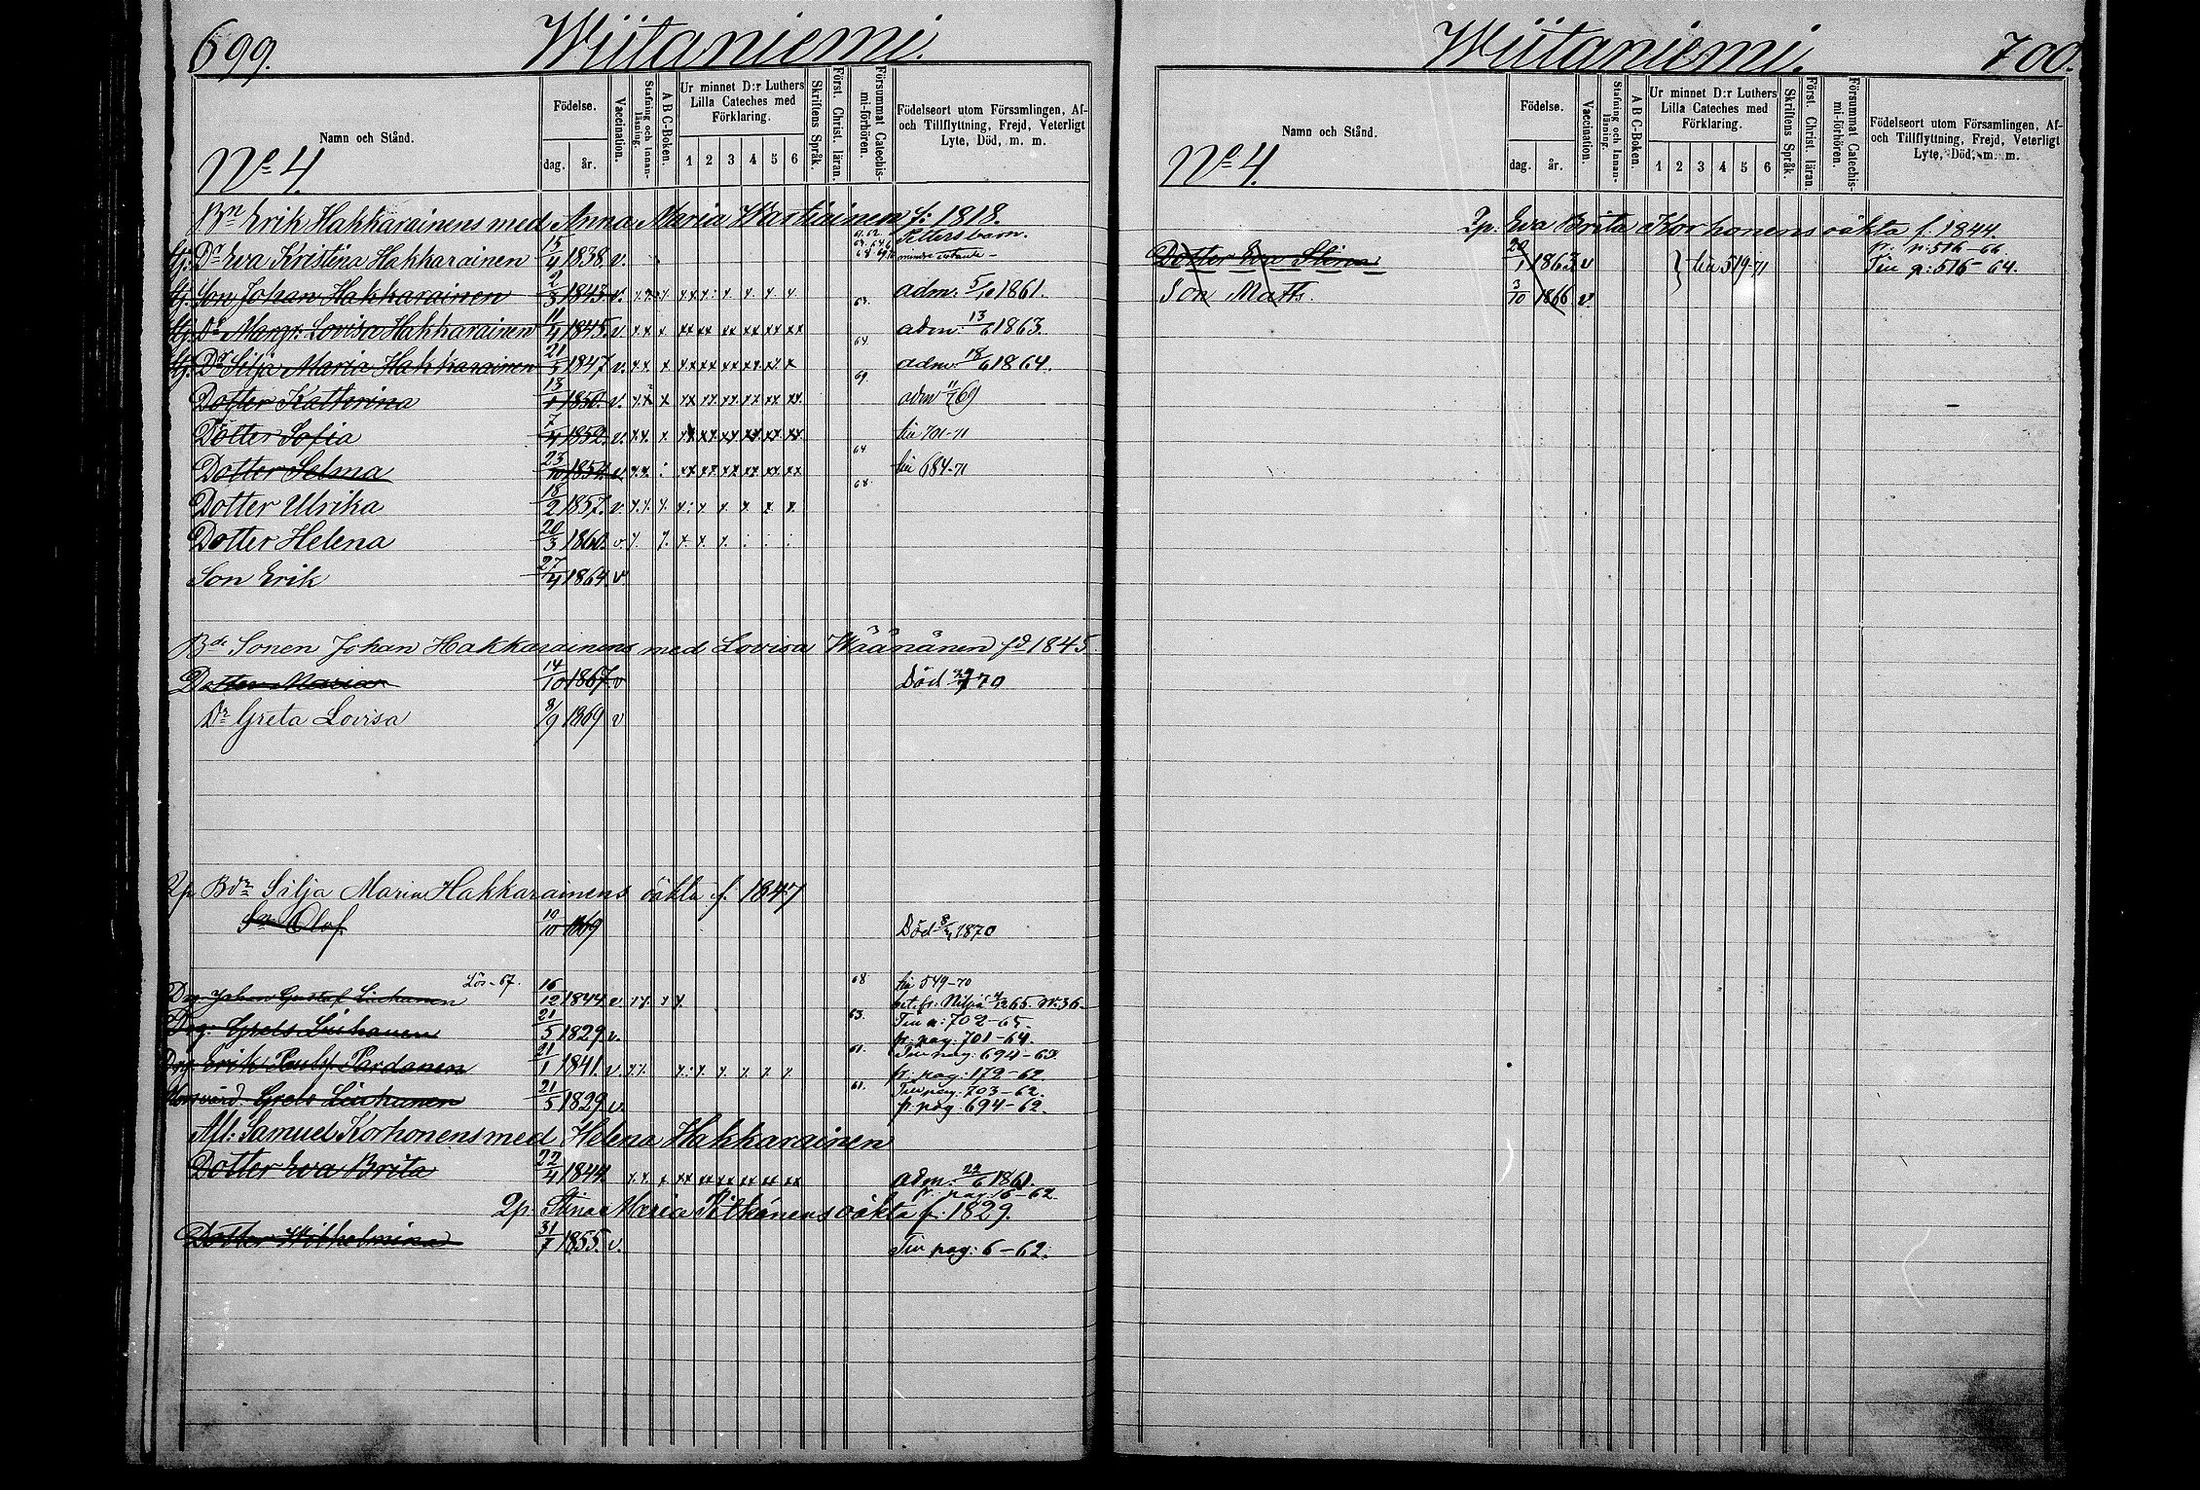 699. Wiitaniemi.
Namn och Stånd.
Födelse.
dag. år.
Vaccination.
Stafning och Innanläsning.
A B C-Boken.
Ur minnet D:r Luthers Lilla Cateches med Förklaring.
1 2 3 4 5 6
Skriftens Språk.
Först. Christ. läran.
Försummat Catechismi-förhören.
Födelseort utom Församlingen, Af- och Tillflyttning, Frejd, Veterligt Lyte, Död, m. m.
No 4.
Bn Erik Hakkarainens med Anna Maria Wartiainen f: 1818.
Dr Eva Kristina Hakkarainen 15/4 1838. v.
Son Johan Hakkarainen 2/3 1843. v. adm. 5/10 1861.
Dr Margr. Lovisa Hakkarainen 11/4 1845. v. 63. adm. 13/6 1863.
Dr Silja Maria Hakkarainen 21/5 1847. v. 64. adm. 18/6 1864.
Dotter Katterina 13/1 1850. v. 69. adm 11/7 69
Dotter Sofia 7/4 1852. v. till 701-71
Dotter Selma 23/10 1854. v. 64 till 684-71
Dotter Ulrika 18/2 1857. v. 68.
Dotter Helena 20/3 1860. v.
Son Erik 27/4 1864. v
Bd Sonen Johan Hakkarainens med Lovisa Wäänänen fd 1845.
Dotter Maria 14/10 1867. v Död 70
Dr Greta Lovisa 8/9 1869 v
2p. Bdr Silja Maria Hakkarainens oäkta f. 1847
Sn Olof 10/10 1869 Död 1870
Lös-67. 68 till 549-70
Drg. Johan Gustaf 16/12 1844. v. 65. No 36.
Drg. Grels 21/5 1829. v. 63. Till p: 702-65.
fr. pag: 701-64.
Drg. Erik Pardanen 21/1 1841. v. 61. Till pag: 694-63.
fr. pag: 179-62.
Grels 21/5 1829. v. 61. Till pag: 703-62.
fr. pag: 694-62.
Afl: Samuel Korhonens med Helena Hakkarainen
Dotter Eva Brita 22/4 1844. adm. 22/6 1861.
2p. Stina Maria Pitkänens oäkta f. 1829.
Dotter Wilhelmina 31/7 1855. v. Till pag: 6-62.
Wiitaniemi. 700.
Namn och Stånd.
Födelse.
dag. år.
Vaccination.
Stafning och Innanläsning.
A B C-Boken.
Ur minnet D:r Luthers Lilla Cateches med Förklaring.
1 2 3 4 5 6
Skriftens Språk.
Först. Christ. läran.
Försummat Catechismi-förhören.
Födelseort utom Församlingen, Af- och Tillflyttning, Frejd, Veterligt Lyte, Död, m. m.
No 4.
2p. Eva Brita Korhonens oäkta f. 1844.
fr. p: 516-66
Dotter Eva Stina 20/1 1863. v till 519-71 Till p: 516-64.
Son Matts. 3/10 1866 v